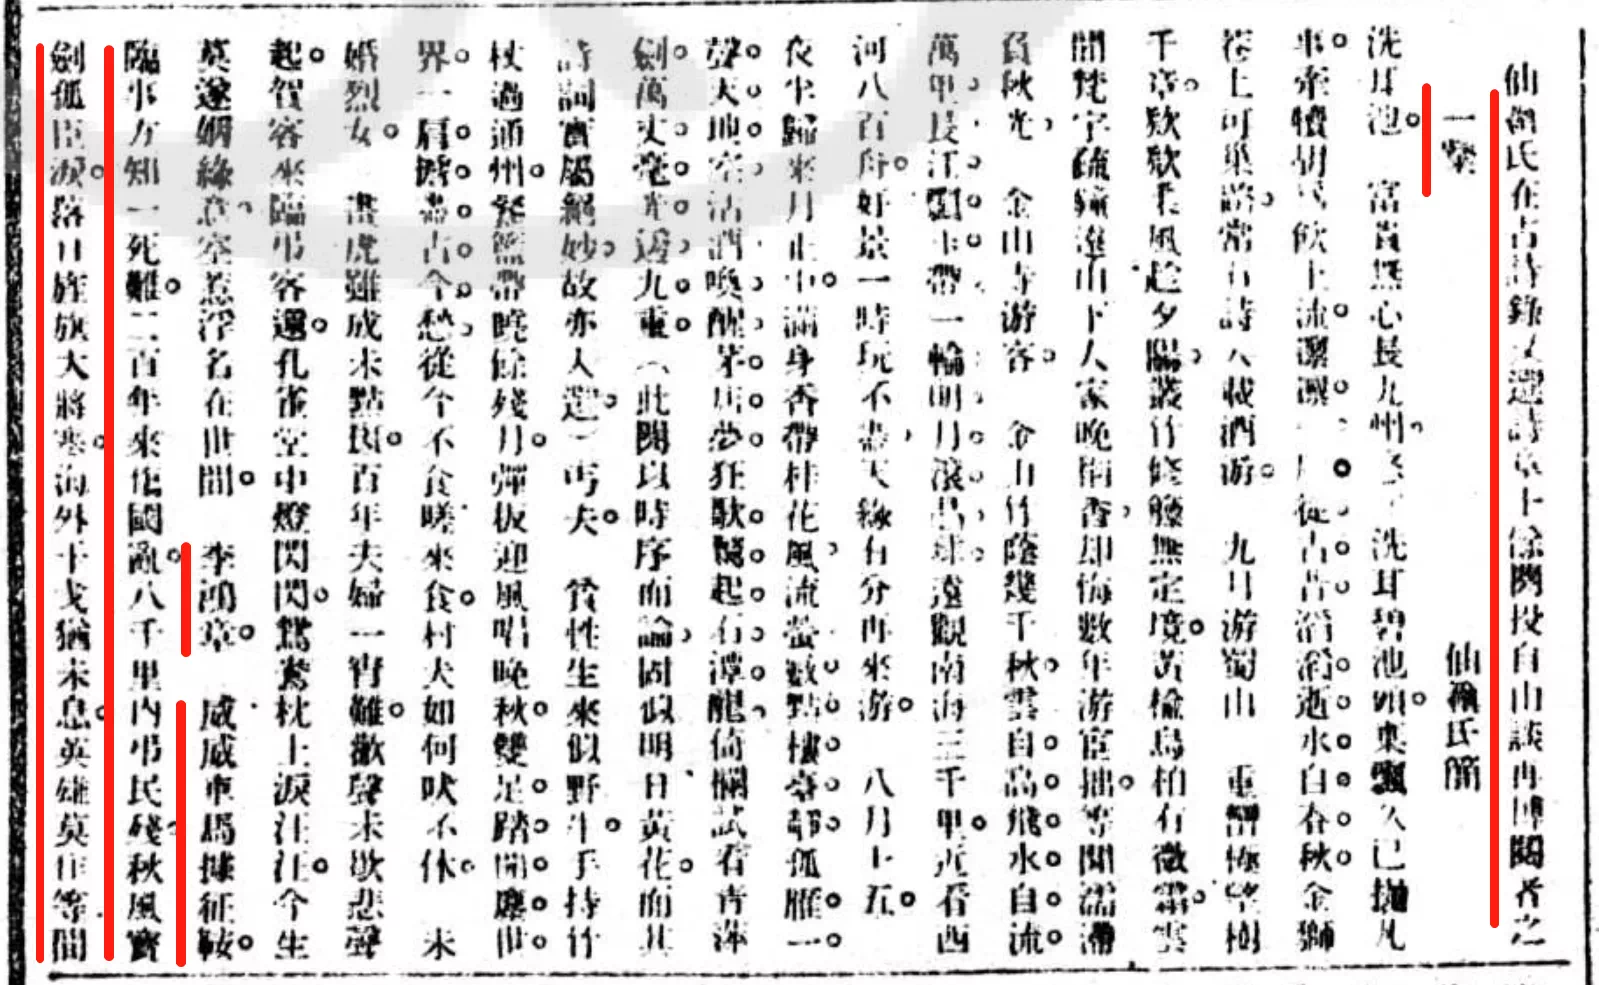 仙龕氏在古詩錄又選詩章十餘闋投自由談再博閱者之
一粲　仙龕氏簡
洗耳池　富貴無心長九州洗耳碧池頭棄瓢久已拋凡
事牽犢胡為飲上流凜凜從古昔滔滔逝水自春秋金獅
巷上可東常有詩人載酒游　九月游蜀山　重疊極望樹
千章欵欵柔風趁夕陽叢竹修籐無定境黃楡烏柏有微霜雲
開梵宇疏鐘遠山下人家晚稻香却悔數年游宦拙等閒濡滯
負秋光　金山寺游客　金山竹陰幾千秋雲自高飛水自流
萬里長江飄玉帶一輪明月滾昌球遠觀南海三千里近看西
河八百舟好景一時玩不盡天緣有分再來游　八月十五
夜坐歸來月正中滿身香帶桂花風流螢數點樓臺靜孤雁一
聲天地空沽酒喚醒茅店夢狂歌驚起石潭龍倚欄試看青萍
劍萬丈毫光透九重（此闋以時序而論固似明日黃花而其
詩詞實屬絕妙故亦入選）丐夫　賀性生來似野牛手持竹
杖過通州飯籃帶曉餘殘月彈板迎風唱晚秋雙足踏開塵世
界一肩擔盡古今愁從今不食嗟來食村犬如何吠不休　未
婚烈女　畫虎雖成未點斑百年夫婦一宵難歡聲未歇悲聲
起賀客來臨弔客還孔雀堂中燈閃閃鴛鴦枕上淚汪汪今生
莫遂姻緣意空惹浮名在世間　李鴻章　威威車馬據征鞍
臨事方知一死難二百年來傷國亂八千里內弔民殘秋風寶
劍孤臣淚落日旌旗大將寒海外干戈猶未息英雄莫作等閒